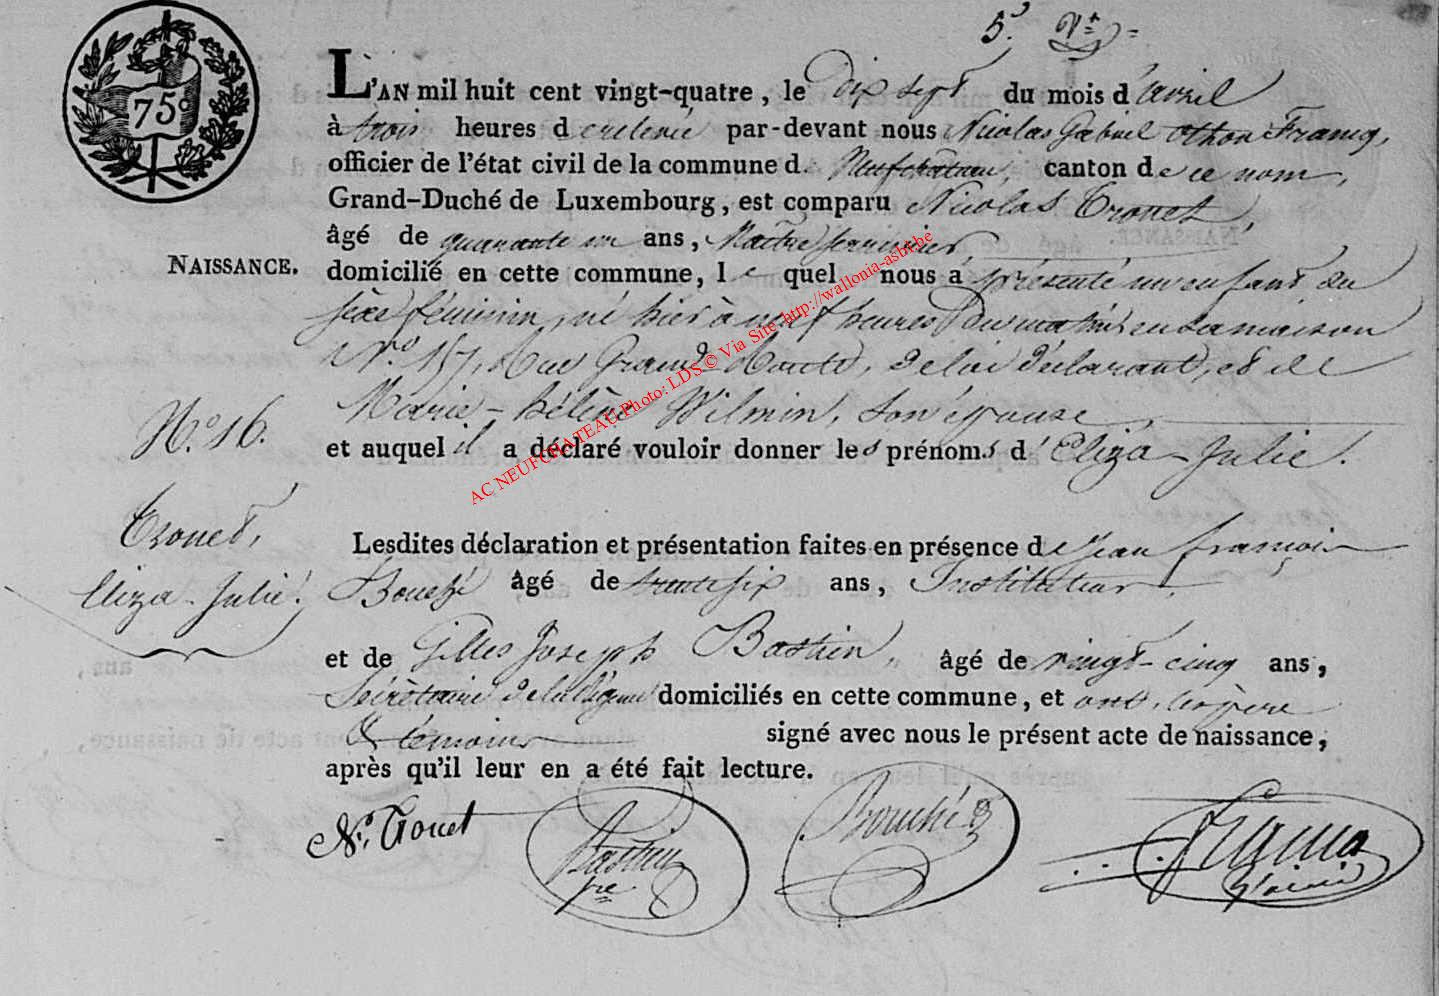 5.e Rt=
75c
L'AN mil huit cent vingt-quatre, le Dix sept du mois d'avril
à trois heures d e relevée par-devant nous Nicolas Gabriel Othon Francq,
officier de l'état civil de la commune d. Neufchateau, canton de ce nom,
Grand-Duché de Luxembourg, est comparu Nicolas Trouet,
âgé de quarante un ans, Maître serrurier,
NAISSANCE.
domicilié en cette commune, le quel nous a présenté un enfant du
sèxe féminin, né hier à neuf heures Du matin en sa maison
N.o 157, Rue Grand-Route, de lui déclarant, et de
Marie-hélène Wilmin, son épouse,
N.o 16.
et auquel il a déclaré vouloir donner les prénoms d'Eliza-Julie.
Trouet,
Eliza-Julie.
Lesdites déclaration et présentation faites en présence de jean françois
Bouché âgé de trente six ans, Instituteur,
et de Gilles Joseph Bastien, âgé de vingt-cinq ans,
Sécrètaire de la Régence domiciliés en cette commune, et ont, les père
& témoins signé avec nous le présent acte de naissance,
après qu'il leur en a été fait lecture.
N.s Trouet Bastien Bouché Francq
AC NEUFCHATEAU Photo: LDS © Via Site -http://wallonia-asbl.be